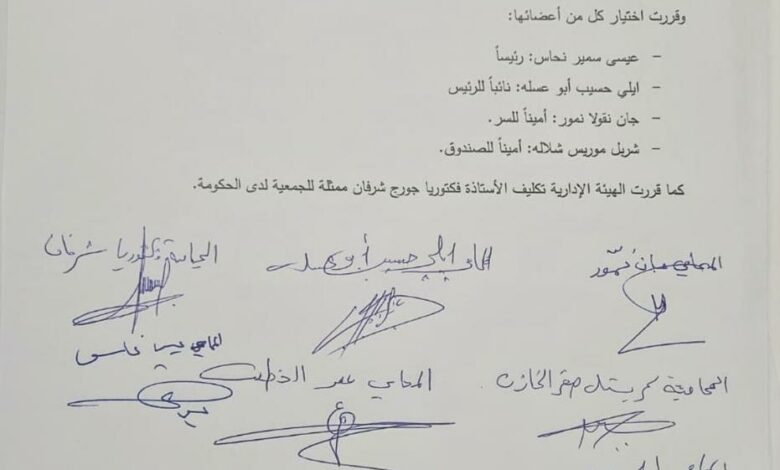 وقررت اختيار كل من أعضائها:
- عيسى سمير نحاس: رئيساً
- ايلي حسيب أبو عسله: نائباً للرئيس
- جان نقولا نمور: أميناً للسر.
- شربل موريس شلاله: أميناً للصندوق.
كما قررت الهيئة الإدارية تكليف الأستاذة فكتوريا جورج شرفان ممثلة للجمعية لدى الحكومة.
المحامي جان نمّور
المحامي ايلي حسيب أبو عسله
المحامية فكتوريا شرفان
المحامي عيسى نحاس
المحامية كريستل صقر الخازن
المحامي عمر الخطيب